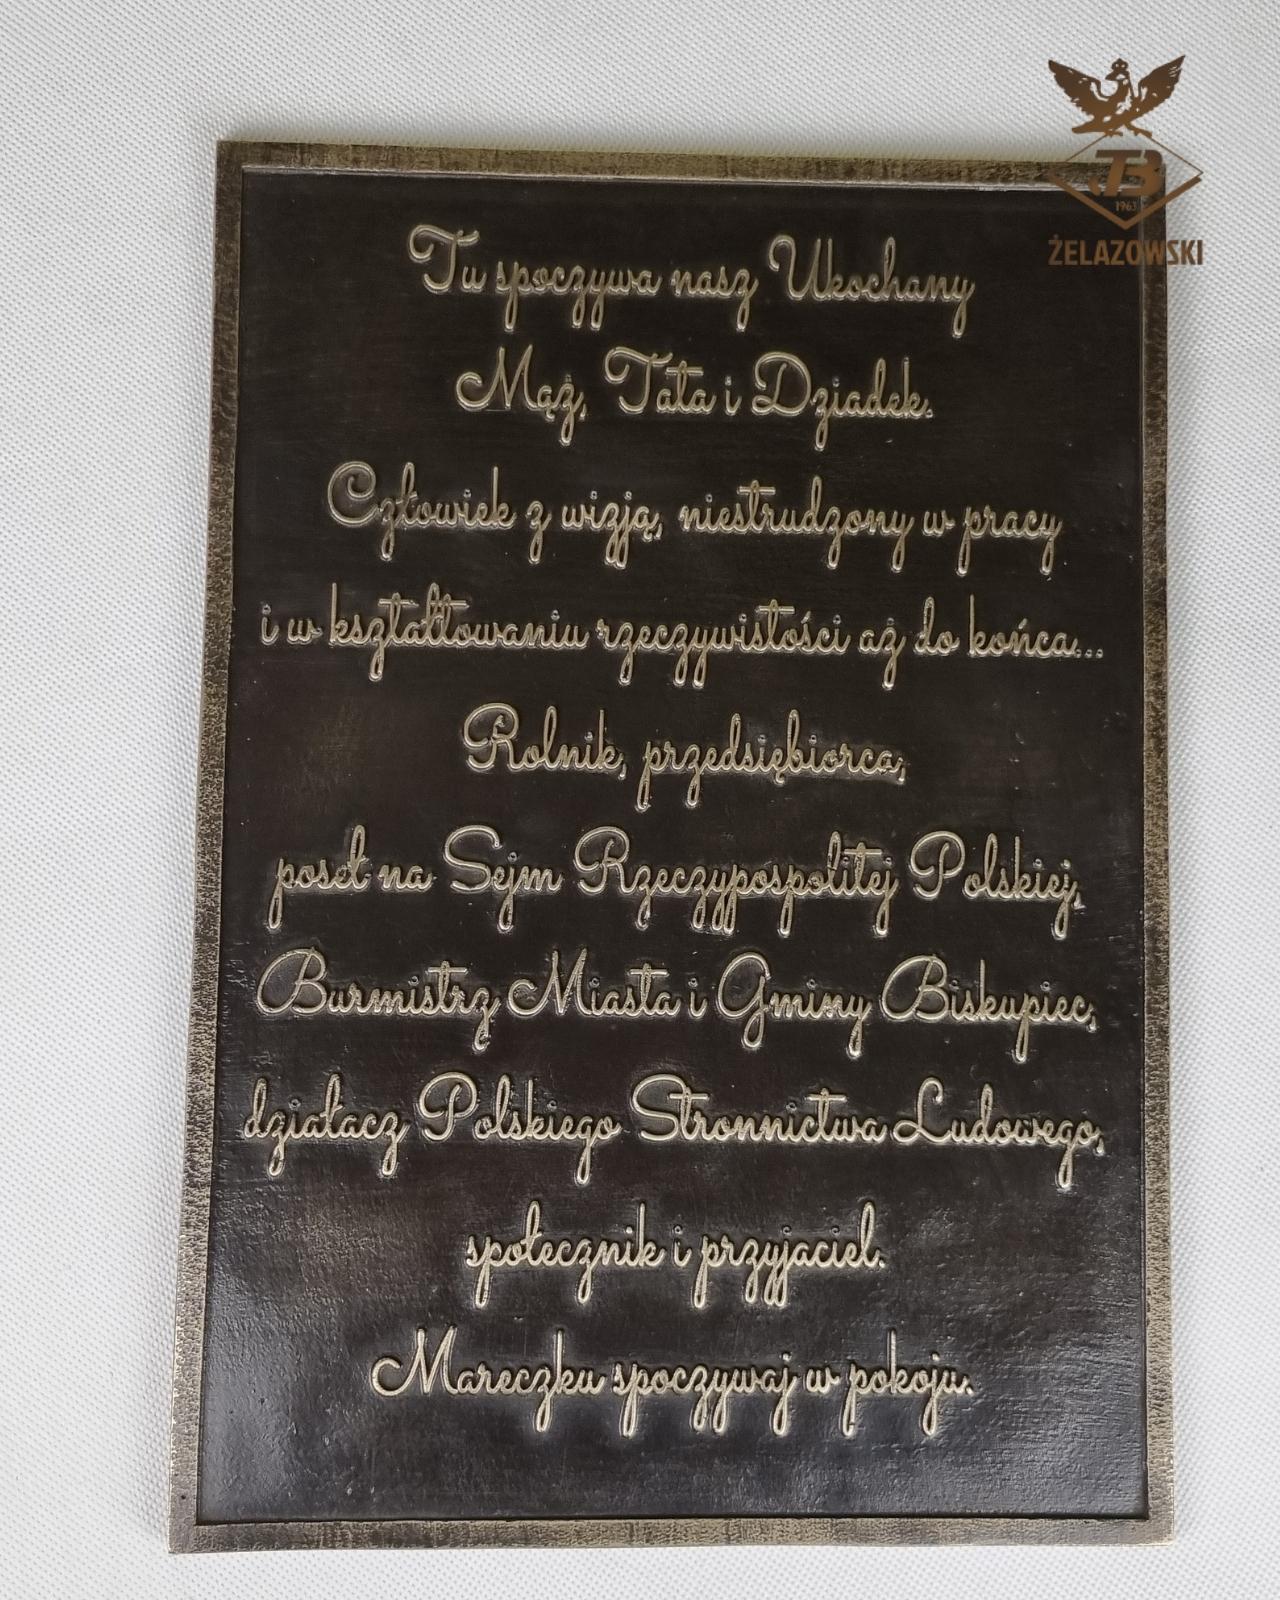 TB
1963
ŻELAZOWSKI
Tu spoczywa nasz Ukochany
Mąż, Tata i Dziadek.
Człowiek z wizją, niestrudzony w pracy
i w kształtowaniu rzeczywistości aż do końca...
Rolnik, przedsiębiorca,
poseł na Sejm Rzeczypospolitej Polskiej,
Burmistrz Miasta i Gminy Biskupiec,
działacz Polskiego Stronnictwa Ludowego,
społecznik i przyjaciel.
Mareczku spoczywaj w pokoju.